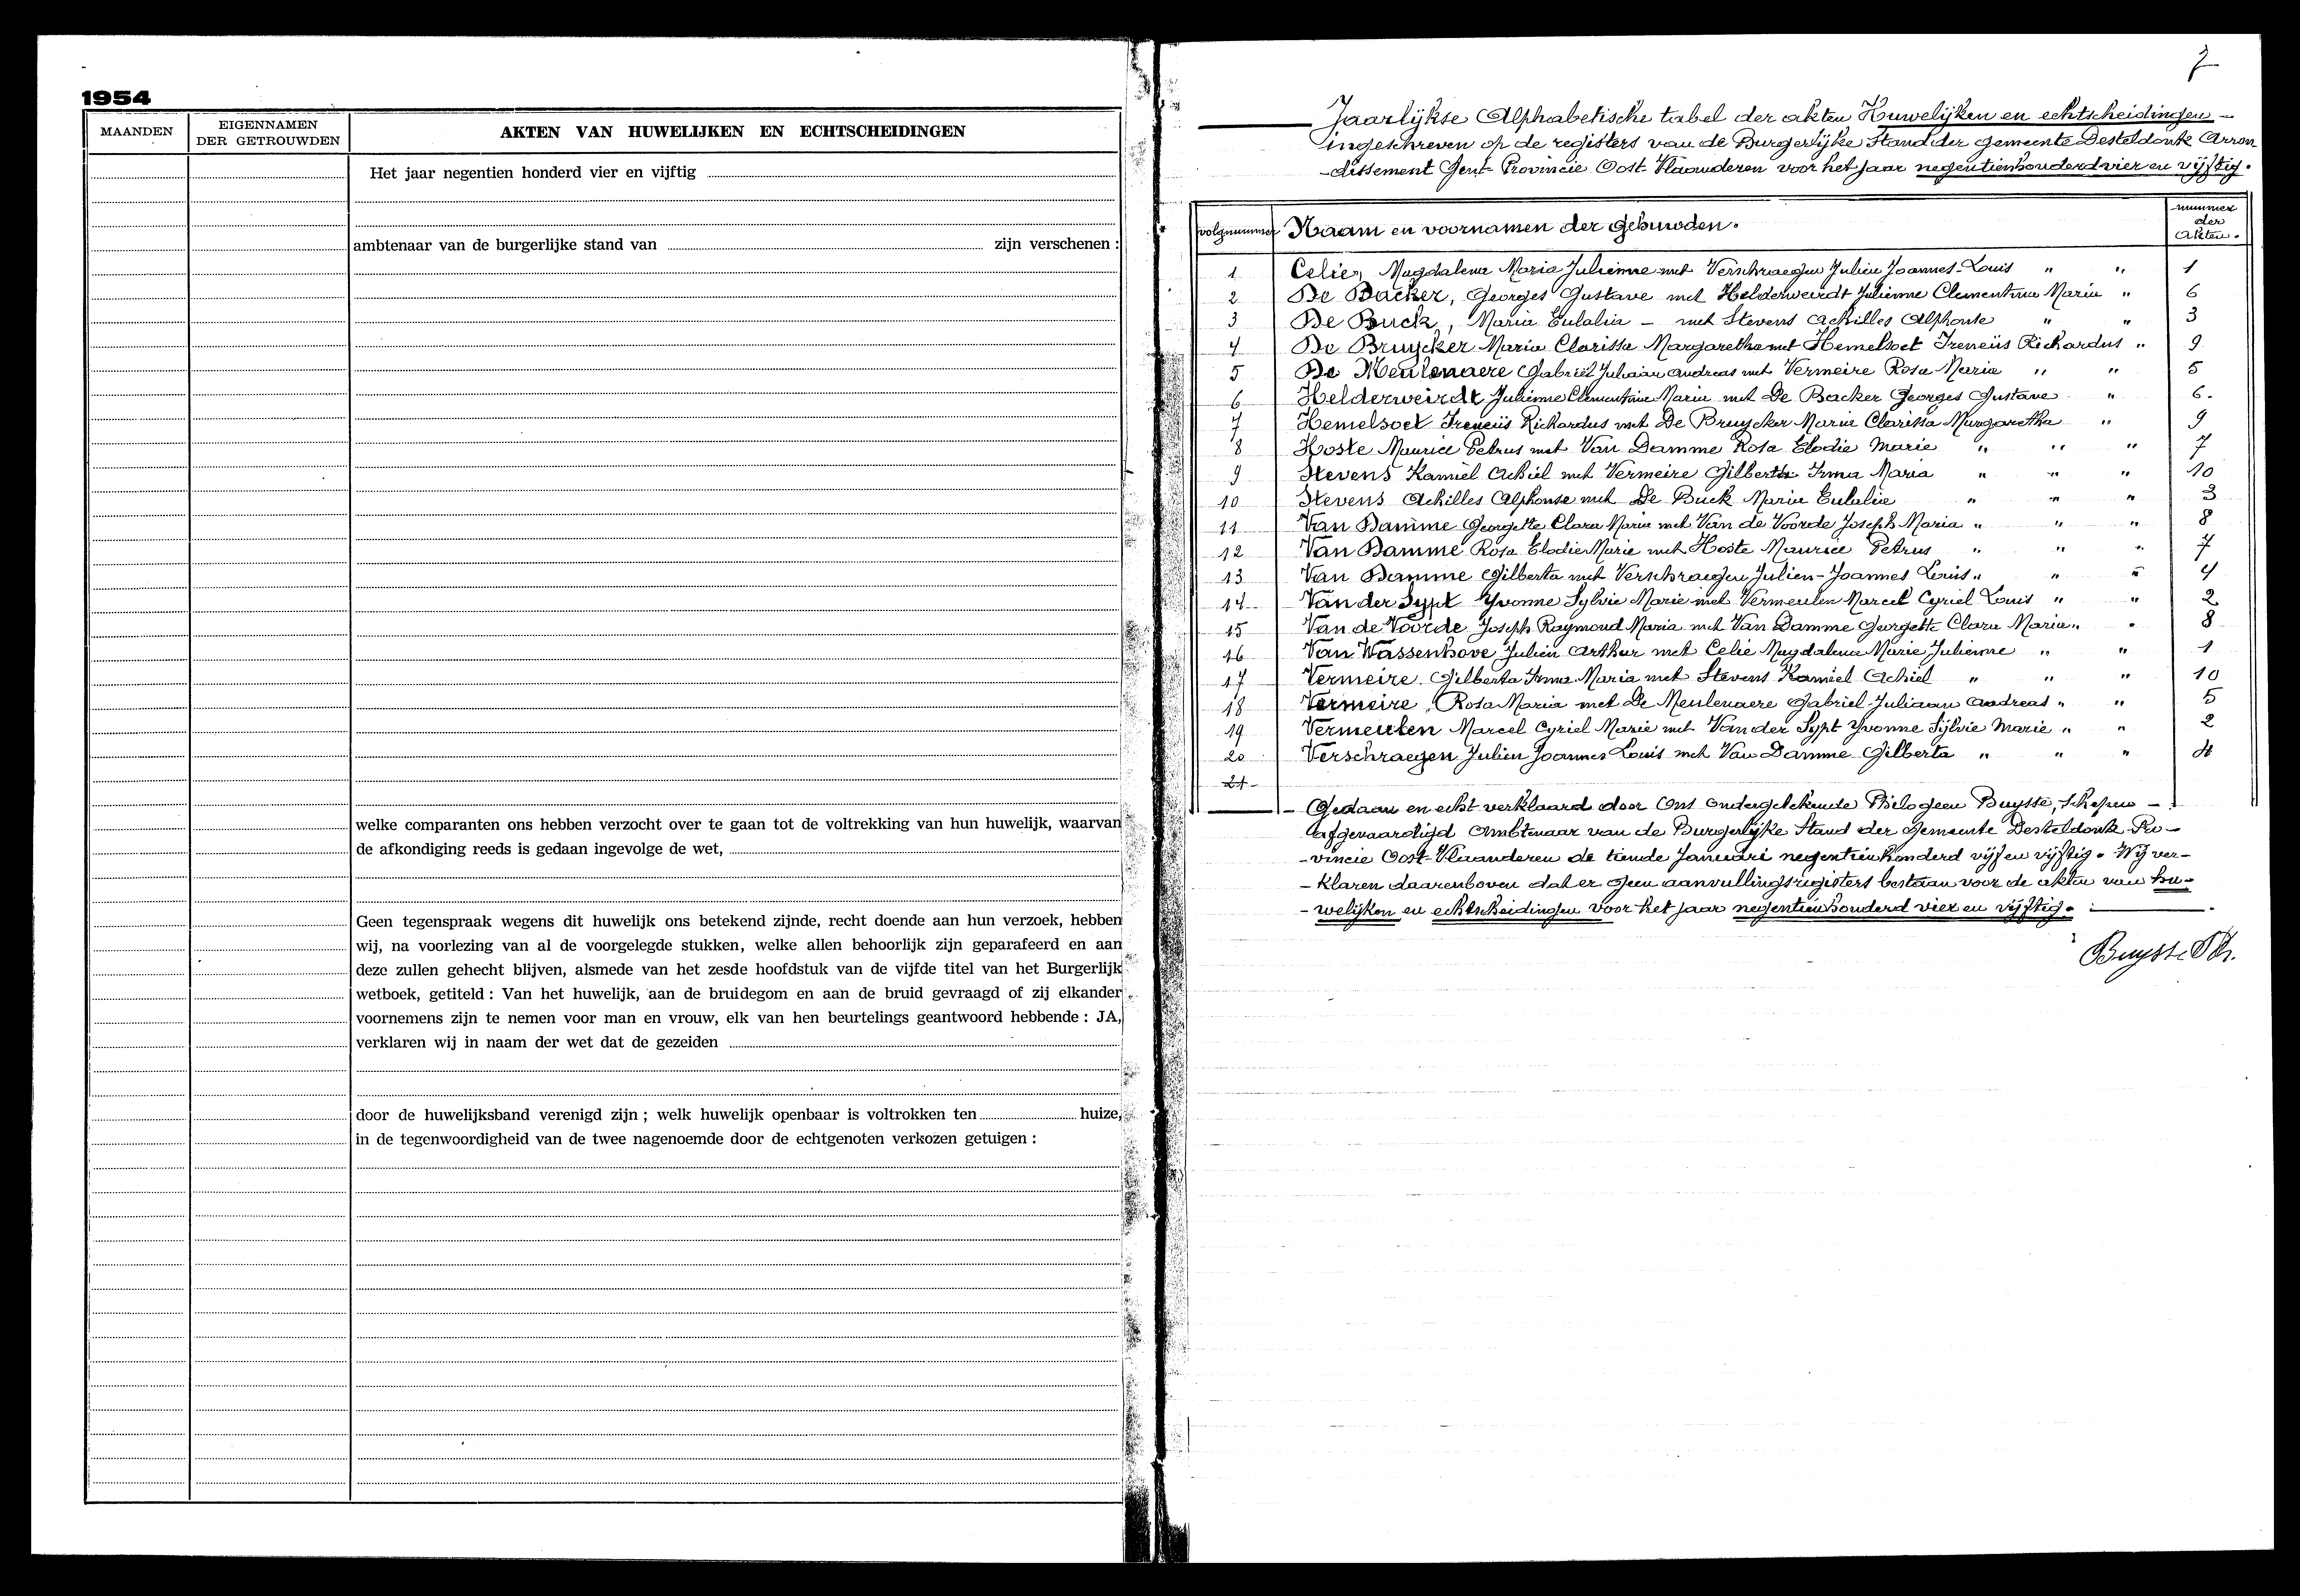 1954
MAANDEN
EIGENNAMEN
DER GETROUWDEN
AKTEN VAN HUWELIJKEN EN ECHTSCHEIDINGEN
Het jaar negentien honderd vier en vijftig
ambtenaar van de burgerlijke stand van zijn verschenen :
welke comparanten ons hebben verzocht over te gaan tot de voltrekking van hun huwelijk, waarvan
de afkondiging reeds is gedaan ingevolge de wet,
Geen tegenspraak wegens dit huwelijk ons betekend zijnde, recht doende aan hun verzoek, hebben
wij, na voorlezing van al de voorgelegde stukken, welke allen behoorlijk zijn geparafeerd en aan
deze zullen gehecht blijven, alsmede van het zesde hoofdstuk van de vijfde titel van het Burgerlijk
wetboek, getiteld : Van het huwelijk, aan de bruidegom en aan de bruid gevraagd of zij elkander
voornemens zijn te nemen voor man en vrouw, elk van hen beurtelings geantwoord hebbende : JA,
verklaren wij in naam der wet dat de gezeiden
door de huwelijksband verenigd zijn ; welk huwelijk openbaar is voltrokken ten huize,
in de tegenwoordigheid van de twee nagenoemde door de echtgenoten verkozen getuigen :
7
Jaarlijkse Alphabetische tabel der akten Huwelijken en echtscheidingen -
ingeschreven op de registers van de Burgerlijke Stand der gemeente Desteldonk Arron
-dissement Gent- Provincie Oost-Vlaanderen voor het jaar negentienhonderd vier en vijftig.
volgnummer Naam en voornamen der gehuwden. nummer der Akten.
1 Celie, Magdalena Maria Julienne met Verschraegen Julien Joannes-Louis " " 1
2 De Backer, Georges Gustave met Helderweirdt Julienne Clementina Maria " 6
3 De Buck, Maria Eulalia - met Stevens Achilles Alphonse " " 3
4 De Bruycker Maria Clarissa Margaretha met Hemelsoet Ireneüs Richardus " 9
5 De Meulenaere Gabriël Juliaan Andreas met Vermeire Rosa Maria " " 5
6 Helderweirdt Julienne Clementina Maria met De Backer Georges Gustave " 6.
7 Hemelsoet Ireneüs Richardus met De Bruycker Maria Clarissa Margaretha " 9
8 Hoste Maurice Petrus met Van Damme Rosa Elodie Marie " " " 7
9 Stevens Kamiel Achiel met Vermeire Gilberta Irma Maria " " " 10
10 Stevens Achilles Alphonse met De Buck Maria Eulalie " " " 3
11 Van Damme Georgette Clara Maria met Van de Voorde Joseph Maria " " " 8
12 Van Damme Rosa Elodie Marie met Hoste Maurice Petrus " " " 7
13 Van Damme Gilberta met Verschraegen Julien-Joannes Louis " " " 4
14 Van der Sypt Yvonne Sylvie Marie met Vermeulen Marcel Cyriel Louis " " 2
15 Van de Voorde Joseph Raymond Maria met Van Damme Georgette Clara Maria " " 8
16 Van Wassenhove Julien Arthur met Celie Magdalena Marie Julienne " " 1
17 Vermeire Gilberta Irma Maria met Stevens Kamiel Achiel " " " 10
18 Vermeire, Rosa Maria met De Meulenaere Gabriel-Juliaan Andreas " " 5
19 Vermeulen Marcel Cyriel Marie met Van der Sypt Yvonne Sylvie Marie " " 2
20 Verschraegen Julien Joannes Louis met Van Damme Gilberta " " " 4
21 -
- Gedaan en echt verklaard door Ons ondergetekende Philogeen Buysse, Schepen -
Afgevaardigd Ambtenaar van de Burgerlijke Stand der gemeente Desteldonk Pro-
-vincie Oost-Vlaanderen de tiende Januari negentienhonderd vijf en vijftig. Wij ver-
-klaren daarenboven dat er geen aanvullingsregisters bestaan voor de akten van hu-
-welijken en echtscheidingen voor het jaar negentienhonderd vier en vijftig.
Buysse Ph.